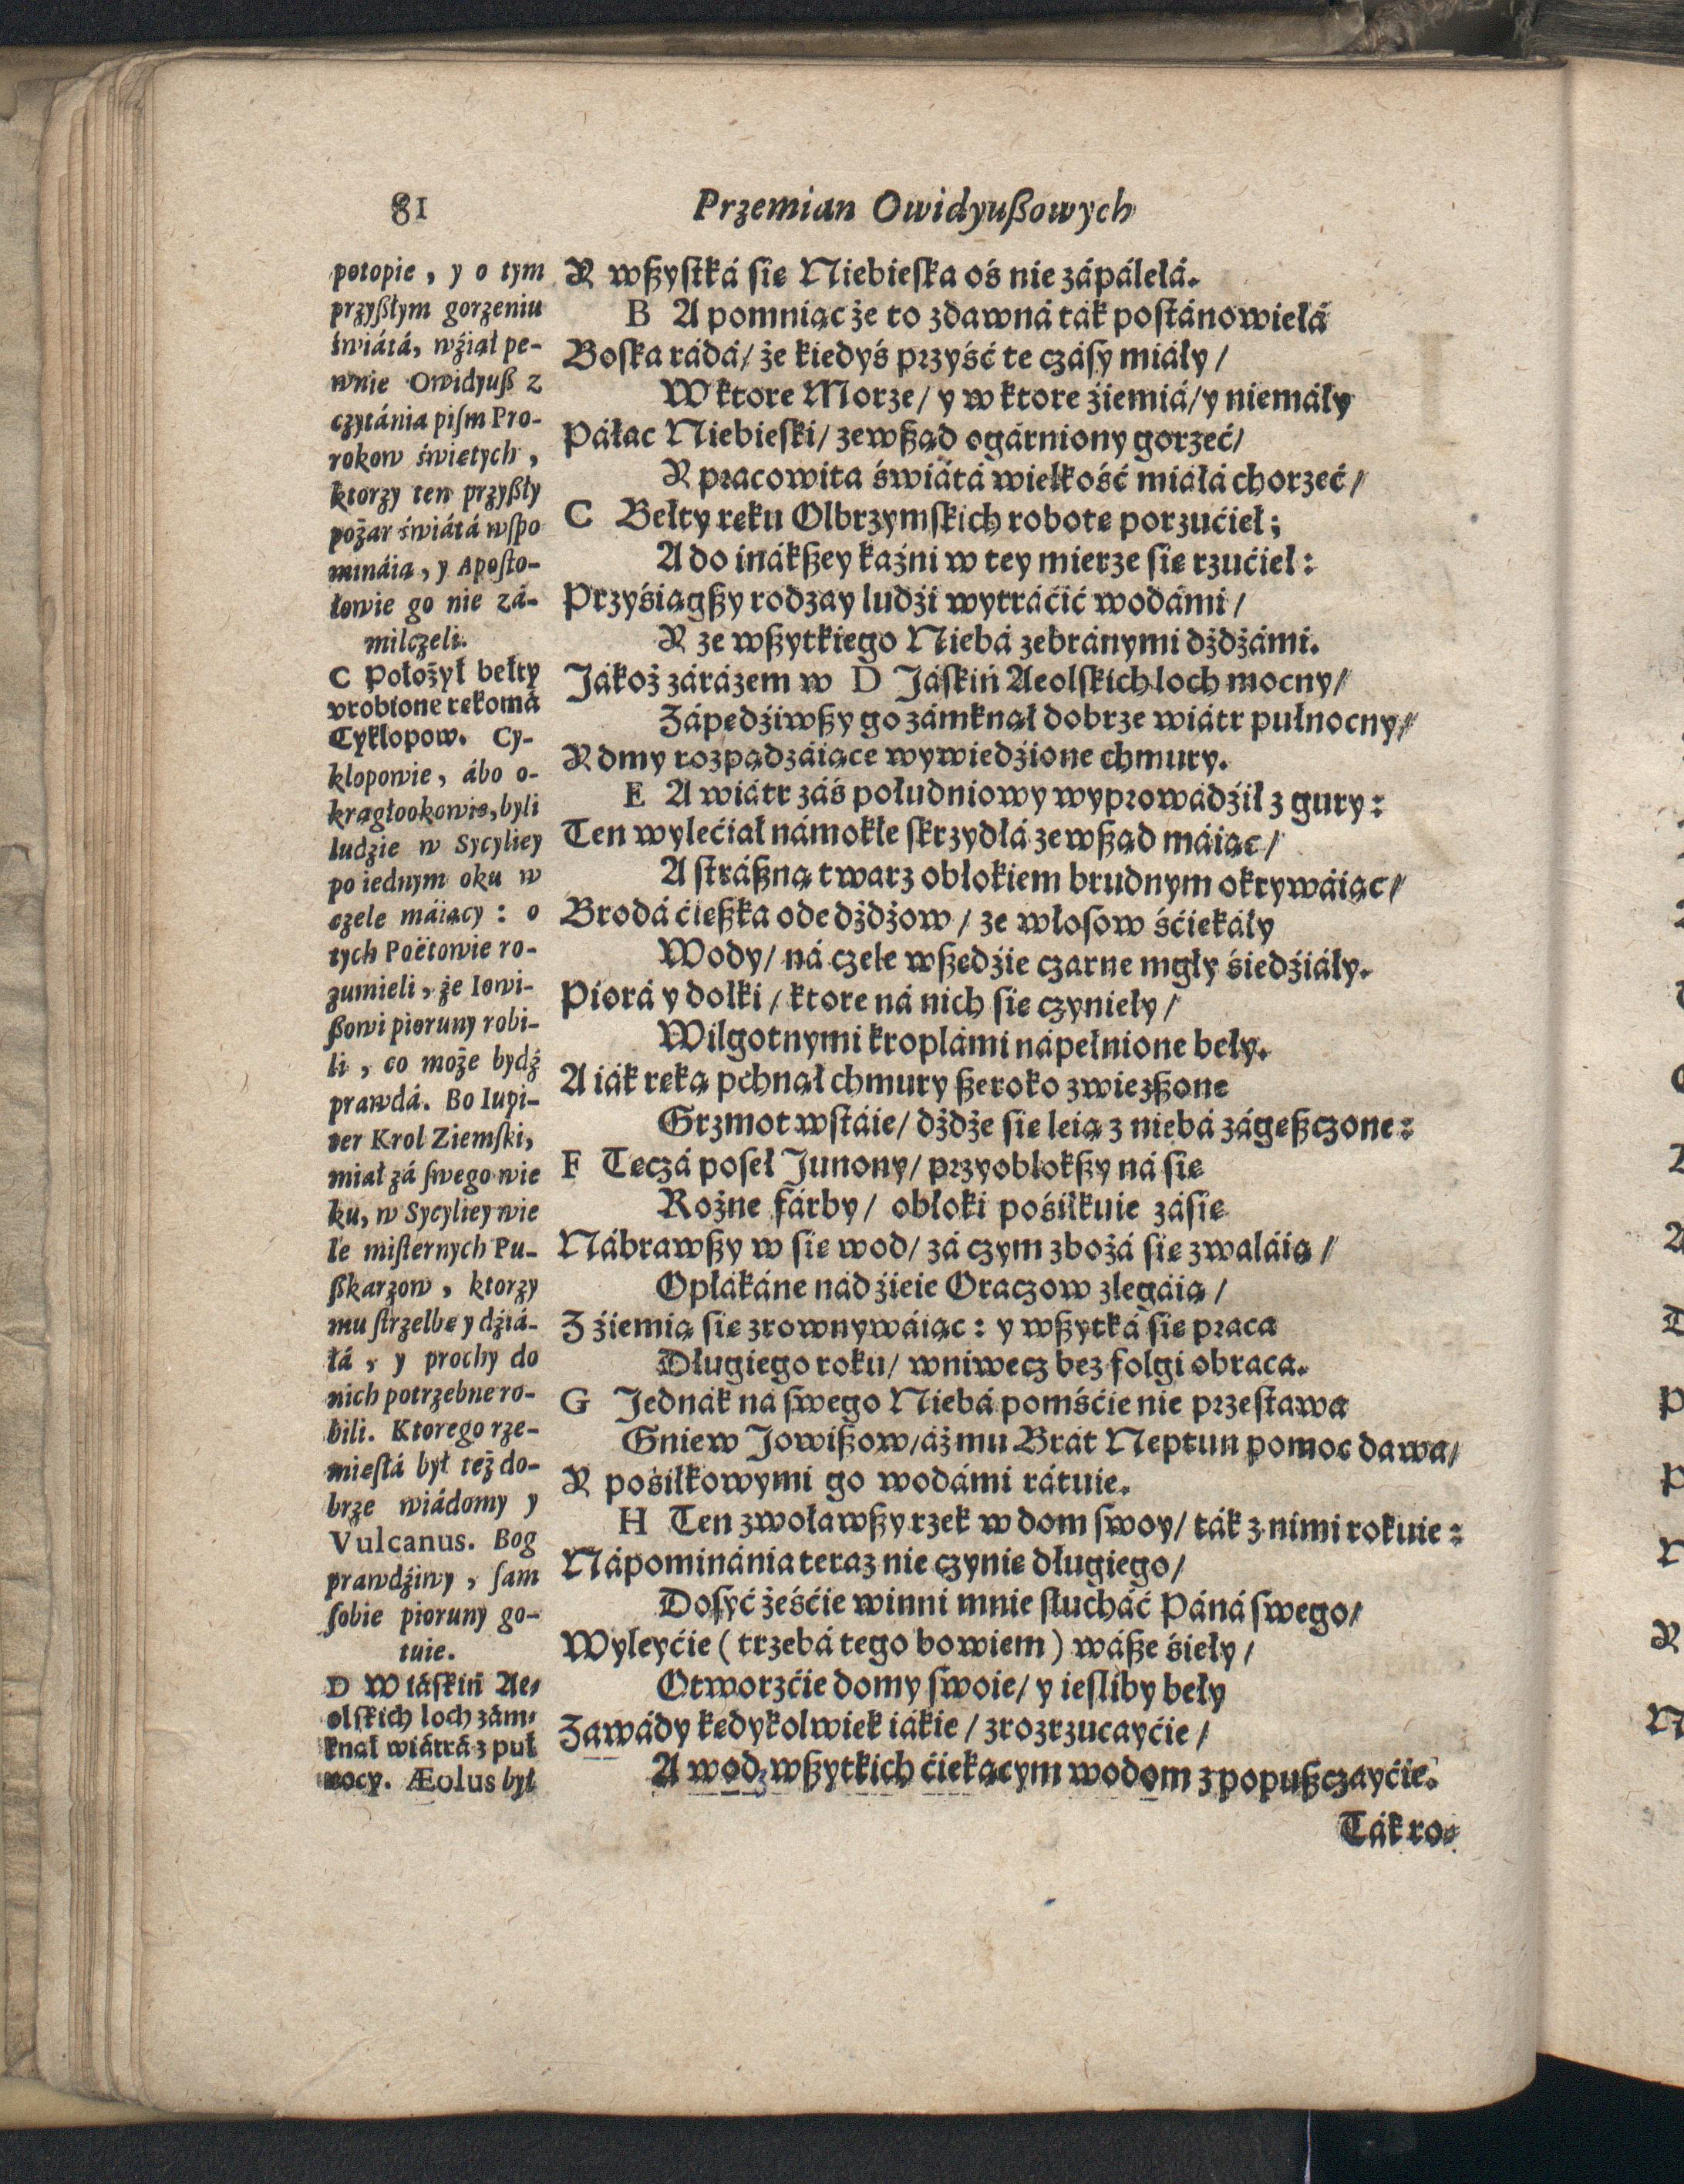 81
Przemian Owidyußowych
potopie, y o tym
przyßłym gorzeniu
świátá, wźiął pe-
wnie Owidyuß z
czytánia piſm Pro-
rokow świętych,
ktorzy ten przyßły
pożar świátá wſpo
mináią, y Apoſto-
łowie go nie zá-
milczeli.
C Położył bełty
vrobione rękomá
Cyklopow. Cy-
klopowie, ábo o-
krągłookowie, byli
ludzie w Sycyliey
po iednym oku w
czele máiący: o
tych Poëtowie ro-
zumieli, że Iowi-
ßowi pioruny robi-
li, co może bydź
prawdá. Bo Iupi-
ter Krol Ziemſki,
miał zá ſwego wie
ku, w Sycyliey wie
le miſternych Pu-
ßkarzow, ktorzy
mu ſtrzelbę y dźiá-
łá, y prochy do
nich potrzebne ro-
bili. Ktorego rze-
mieſłá był też do-
brze wiádomy y
Vulcanus. Bog
prawdźiwy, ſam
ſobie pioruny go-
tuie.
D W iáſkiń Ae-
olſkich loch zám-
knął wiátrá z puł
nocy. Æolus był
Y wßyſtká ſię Niebieſka oś nie zápálełá.
B A pomniąc że to zdawná ták poſtánowiełá
Boſka rádá/ że kiedyś przyść te czáſy miáły/
W ktore Morze/ y w ktore źiemiá/ y niemáły
Páłac Niebieſki/ zewßąd ogárniony gorzeć/
Y pracowita świátá wielkość miáłá chorzeć/
C Bełty ręku Olbrzymſkich robotę porzućieł;
A do inákßey kaźni w tey mierze ſię rzućieł:
Przyśiągßy rodzay ludźi wytráćić wodámi/
Y ze wßytkiego Niebá zebránymi dżdżámi.
Jákoż zárázem w D Jáſkiń Aeolſkich loch mocny/
Zápędźiwßy go zámknął dobrze wiátr pułnocny/
Y dmy rozpądzáiące wywiedźione chmury.
E A wiátr záś południowy wyprowádźił z gury:
Ten wylećiał námokłe ſkrzydłá zewßąd máiąc/
A ſtráßną twarz obłokiem brudnym okrywáiąc/
Brodá ćięßka ode dżdżow/ ze włoſow śćiekáły
Wody/ ná czele wßędźie czarne mgły śiedźiáły.
Piorá y dołki/ ktore ná nich ſię czynieły/
Wilgotnymi kroplámi nápełnione beły.
A iák ręką pchnął chmury ßeroko zwießone
Grzmot wſtáie/ dżdże ſię leią z niebá zágęßczone:
F Tęczá poſeł Junony/ przyoblokßy ná ſię
Rożne fárby/ obłoki pośiłkuie záſię
Nábrawßy w ſię wod/ zá czym zbożá ſię zwaláią/
Opłákáne nádźieie Oraczow zlegáią/
Z źiemią ſię zrownywáiąc: y wßytká ſię praca
Długiego roku/ wniwecz bez folgi obraca.
G Jednák ná ſwego Niebá pomśćie nie przeſtawa
Gniew Jowißow/ áż mu Brát Neptun pomoc dawa/
Y pośiłkowymi go wodámi rátuie.
H Ten zwoławßy rzek w dom ſwoy/ ták z nimi rokuie:
Nápominánia teraz nie czynię długiego/
Doſyć żeśćie winni mnie ſłucháć Páná ſwego/
Wyleyćie (trzebá tego bowiem) wáße śieły/
Otworzćie domy ſwoie/ y ieſliby beły
Zawády kędykolwiek iákie/ zrozrzucayćie/
A wodz wßytkich ćiekącym wodom zpopußczayćie.
Ták ro-